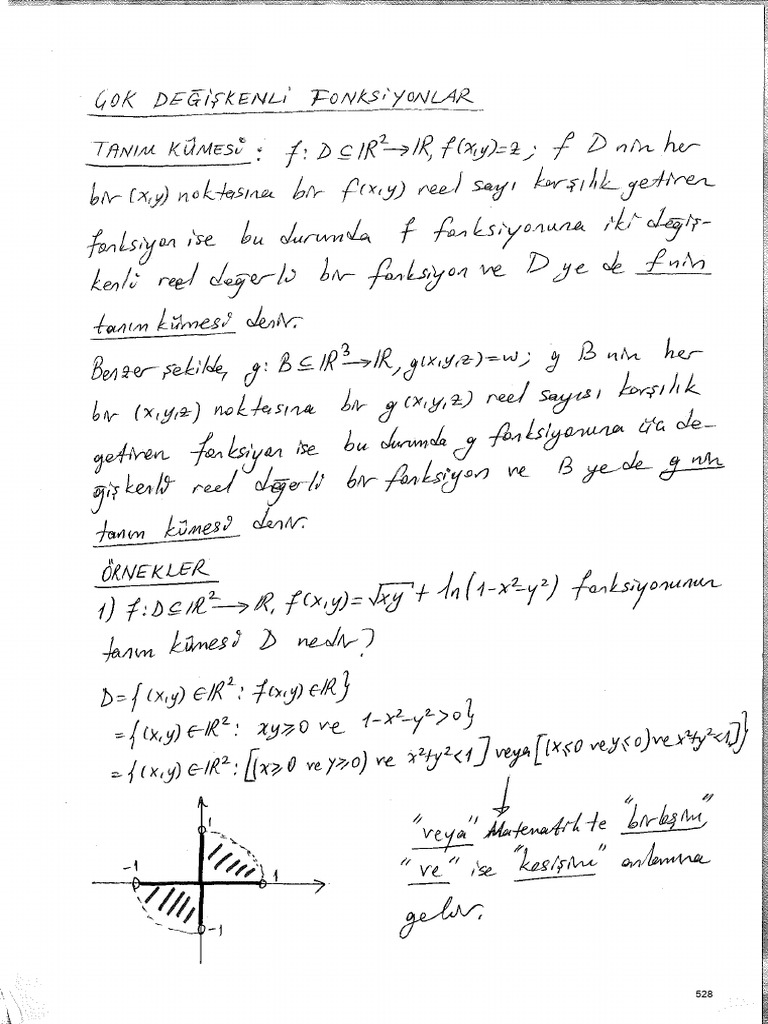 ÇOK DEĞİŞKENLİ FONKSİYONLAR
TANIM KÜMESİ : f: D⊆IR²→IR, f(x,y)=z ; f D nin her
bir (x,y) noktasına bir f(x,y) reel sayı karşılık getiren
fonksiyon ise bu durumda f fonksiyonuna iki değiş-
kenli reel değerli bir fonksiyon ve D ye de f nin
tanım kümesi denir.
Benzer şekilde, g: B⊆IR³→IR, g(x,y,z)=w ; g B nin her
bir (x,y,z) noktasına bir g(x,y,z) reel sayısı karşılık
getiren fonksiyon ise bu durumda g fonksiyonuna üç de-
ğişkenli reel değerli bir fonksiyon ve B ye de g nin
tanım kümesi denir.
ÖRNEKLER
1) f: D⊆IR²→IR, f(x,y)=√xy + ln(1-x²-y²) fonksiyonunun
tanım kümesi D nedir?
D={(x,y)∈IR²: f(x,y)∈IR}
={(x,y)∈IR²: xy≥0 ve 1-x²-y²>0}
={(x,y)∈IR²: [(x≥0 ve y≥0) ve x²+y²<1] veya [(x≤0 ve y≤0) ve x²+y²<1]}
"veya" Matematikte "birleşim",
"ve" ise "kesişim" anlamına
gelir.
1
-1
1
-1
528